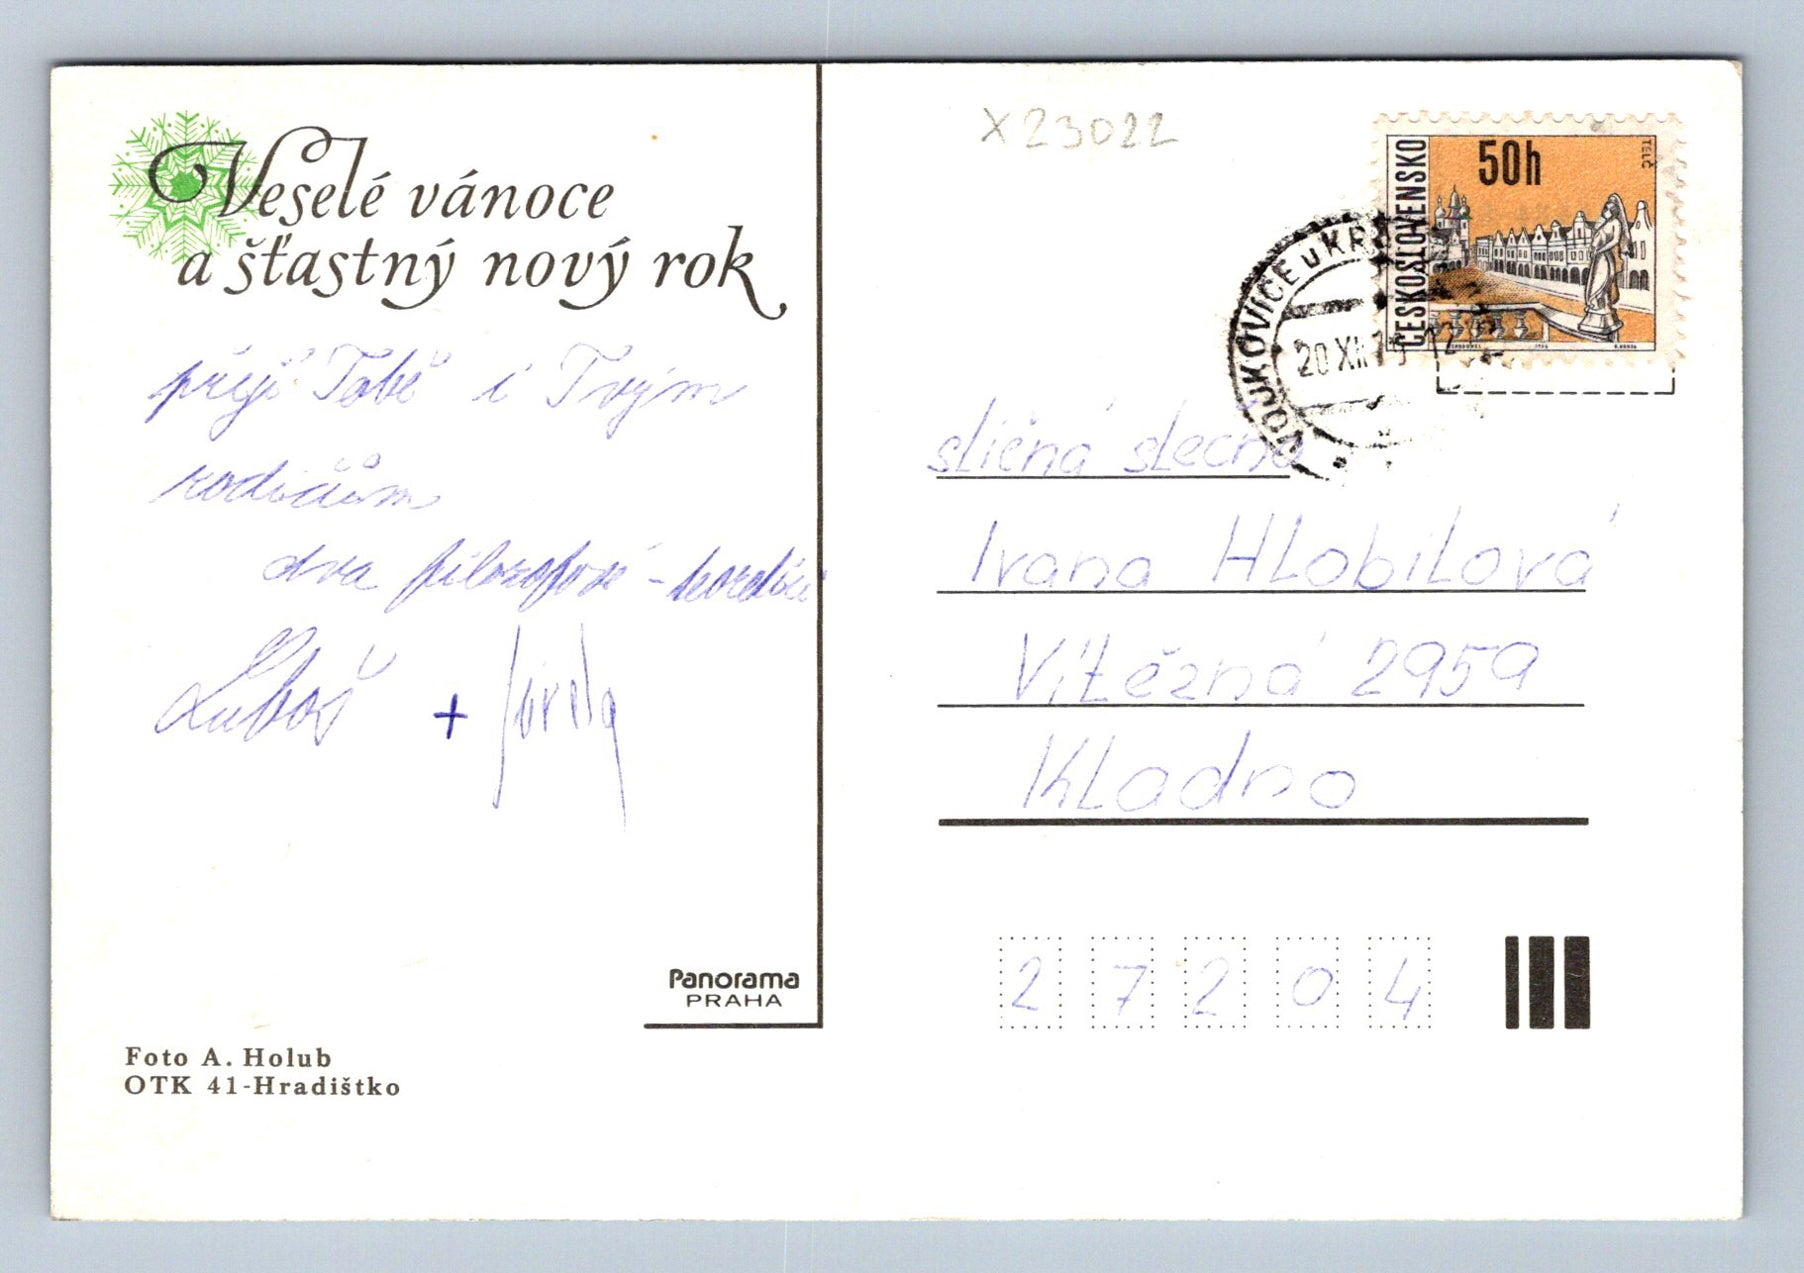 Veselé vánoce
a šťastný nový rok
přejí Tobě i Tvým
rodičům
dva filozofové -
Luboš + Jirda
Panorama
PRAHA
Foto A. Holub
OTK 41-Hradištko
X23022
ČESKOSLOVENSKO
50h
TELČ
20 XII 7
sličná slečna
Ivana Hlobilová
Vítězná 2959
Kladno
27204